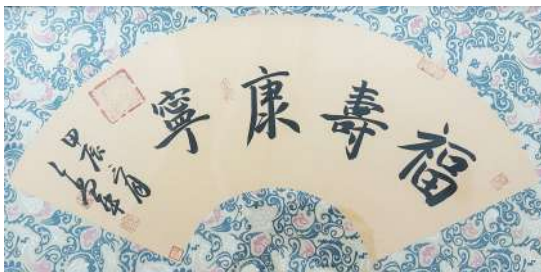 福壽康寧
甲辰